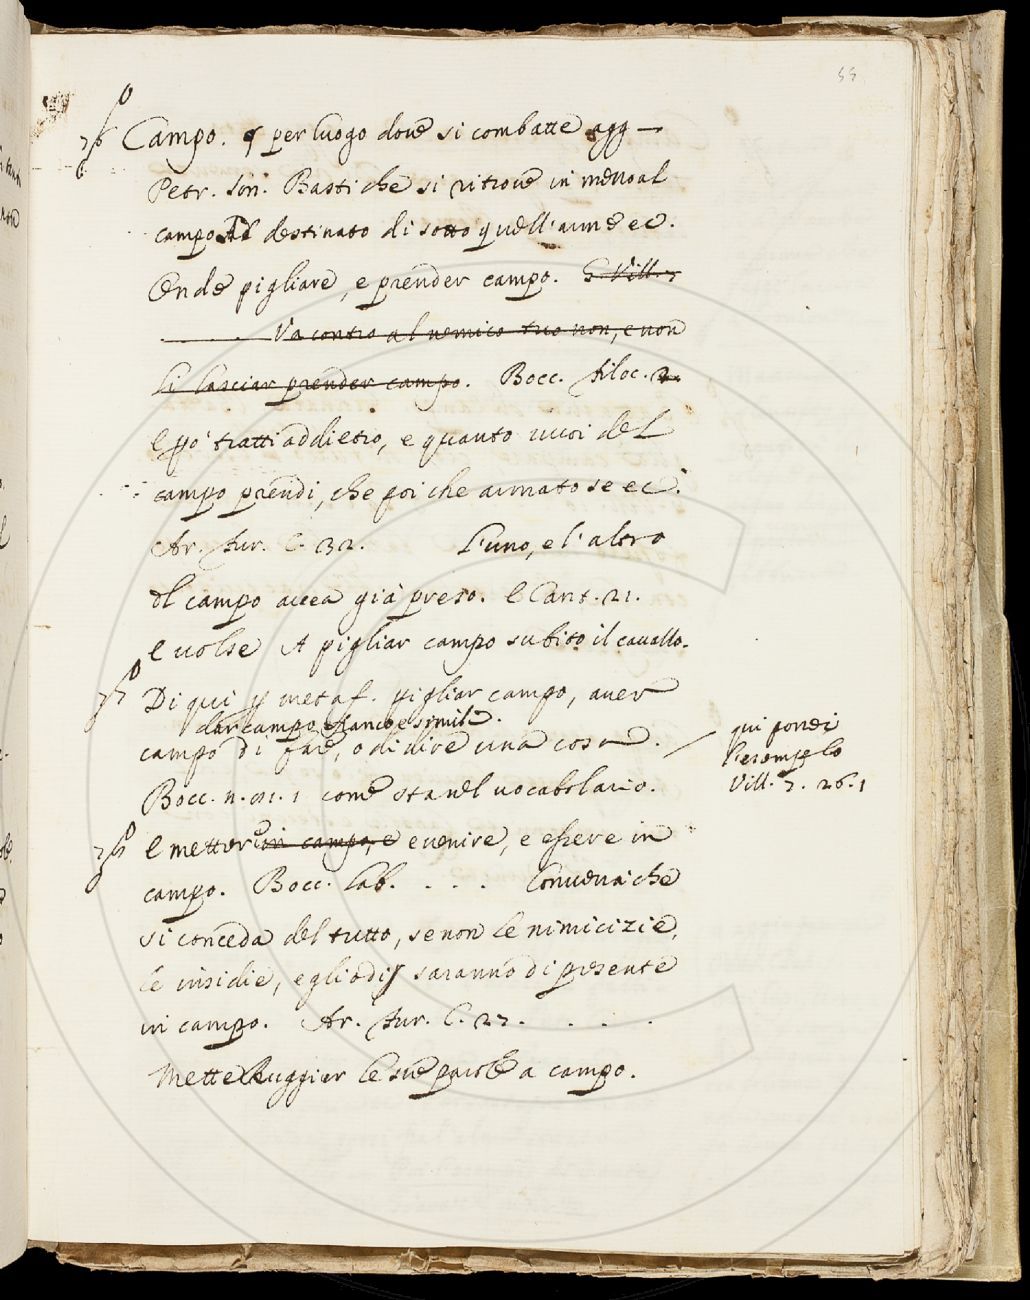 55
Campo. § per luogo doue si combatte agg —
Petr. Son. Basti che si ritroue in mezzo al
campo Al destinato di sotto quell'arme ec.
Onde pigliare, e prender campo. G. Vill. 7
Va contro al nemico tuo non, e non
li lasciar prender campo. Bocc. filoc. 2.
E po' tratti addietro, e quanto vuoi del
campo prendi, che poi che armato se ec.
Ar. fur. C. 32. L'uno, e l'altro
del campo avea già preso. E Cant. 21.
E volse A pigliar campo subito il cavallo.
Di qui p metaf. pigliar campo, aver
dar campo franco e simili.
campo di fare, o di dire una cosa.
qui poni
l'esemplo
Vill. 7. 26. 1
Bocc. n. 01. 1 come sta nel vocabolario.
E mettere in campo, e e venire, e essere in
campo. Bocc. Lab. . . . Conviene che
si conceda del tutto, se non le nimicizie,
le insidie, e gli odij saranno di presente
in campo. Ar. fur. C. 27. . . .
Mette Ruggier le sue parole a campo.